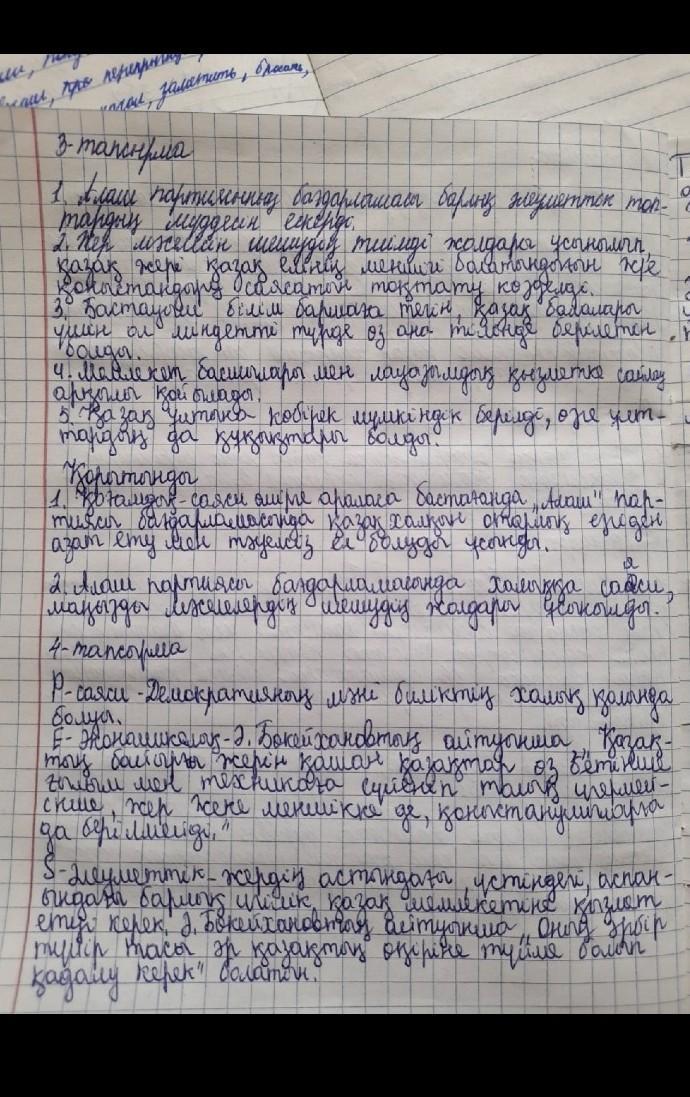 перепрыгнуть,
заметить, бросать,
3-тапсырма
1. Алаш партиясының бағдарламасы барлық әлеуметтік топ-
тардың мүддесін ескерді.
2. Жер мәселесін шешудің тиімді жолдары ұсынылып,
қазақ жері қазақ елінің меншігі болатындығын және
қоныстандыру саясатын тоқтату көзделді.
3. Бастауыш білім баршаға тегін, қазақ балалары
үшін ол міндетті түрде өз ана тілінде берілетін
болды.
4. Мемлекет басшылары мен лауазымдық қызметке сайлау
арқылы қойылады.
5. Қазақ ұлтына көбірек мүмкіндік берілді, өзге ұлт-
тардың да құқықтары болды.
Қорытынды
1. Қоғамдық-саяси өмірге араласа бастағанда „Алаш" пар-
тиясы бағдарламасында қазақ халқын отарлық езгіден
азат ету мен тәуелсіз ел болуды ұсынды.
2. Алаш партиясы бағдарламасында халыққа саяси,
маңызды мәселелердің шешудің жолдары ұсынылды.
4-тапсырма
P-саяси-Демократияның мәні биліктің халық қолында
болуы.
E-Экономикалық-Ә.Бөкейхановтың айтуынша „Қазақ-
тың байырғы жерін қашан қазақтар өз бетінше
ғылым мен техникаға сүйеніп толық игермей-
інше, жер жеке меншікке де, қоныстанушыларға
да берілмейді."
S-Әлеуметтік-жердің астындағы, үстіндегі, аспан-
ындағы барлық игілік қазақ мемлекетіне қызмет
етуі керек. Ә.Бөкейхановтың айтуынша „Оның әрбір
түйір тасы әр қазақтың өңіріне түйме болып
қадалу керек" болатын.